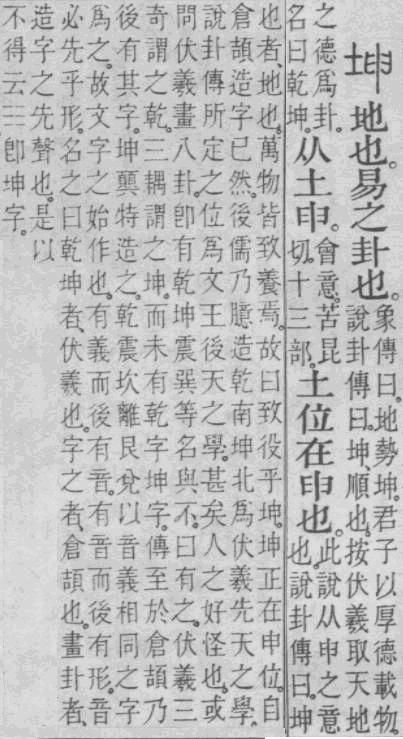 坤 地也。易之卦也。象傳曰。地勢坤。君子以厚德載物。說卦傳曰。坤、順也。按伏羲取天地
之德爲卦。名曰乾坤。从土申。會意。苦昆切。十三部。土位在申也。此說从申之意也。說卦傳曰。坤
也者、地也。萬物皆致養焉。故曰致役乎坤。坤正在申位。自
倉頡造字已然。後儒乃臆造乾南坤北爲伏羲先天之學。
說卦傳所定之位爲文王後天之學。甚矣人之好怪也。或
問伏羲畫八卦。卽有乾坤震巽等名與不。曰有之。伏羲三
奇謂之乾。三耦謂之坤。而未有乾字坤字。傳至於倉頡乃
後有其字。坤顨特造之。乾震坎離艮兌以音義相同之字
爲之。故文字之始作也。有義而後有音。有音而後有形。音
必先乎形。名之曰乾坤者、伏羲也。字之者、倉頡也。畫卦者、
造字之先聲也。是以
不得云☷卽坤字。